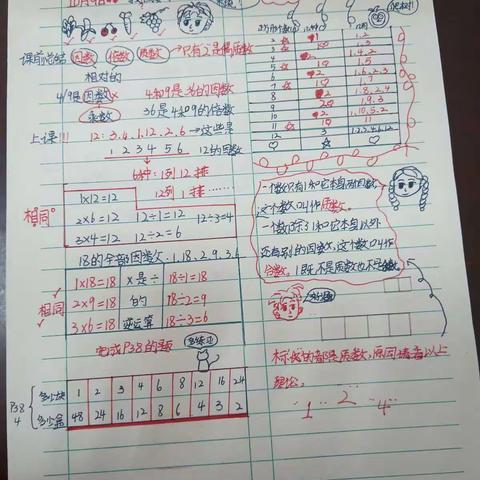 10月9日
课前总结 因数 倍数 质数 →只有2是偶质数
相对的
4/9是因数×
4和9是36的因数
乘数
36是4和9的倍数
上课!!! 12:3.4.1.12.2.6→这些是
1 2 3 4 5 6 12的因数
6种:1列12排
12列1排……
相同
1×12=12
2×6=12 12÷1=12 12÷3=4
3×4=12 12÷2=6
18的全部因数:1,18,2,9,3,6
相同
1×18=18 ×是÷ 18÷1=18
2×9=18 的 18÷2=9
3×6=18 逆运算 18÷3=6
完成P38的题
P38
4
多少块 1 2 3 4 6 8 12 16 24
多少盒 48 24 16 12 8 6 4 3 2
2 1,2
3 1,3
4 1,4,2
5 1,5
6 1,6,2,3
7 1,7
8 1,8,2,4
9 1,9,3
10 1,10,5,2
11 1,11
12 1,2,3,4,6,12
一个数只有1和它本身两个因数,
这个数叫作质数。
一个数除了1和它本身以外
还有别的因数,这个数叫作
合数。1既不是质数也不是合数。
1 2 4